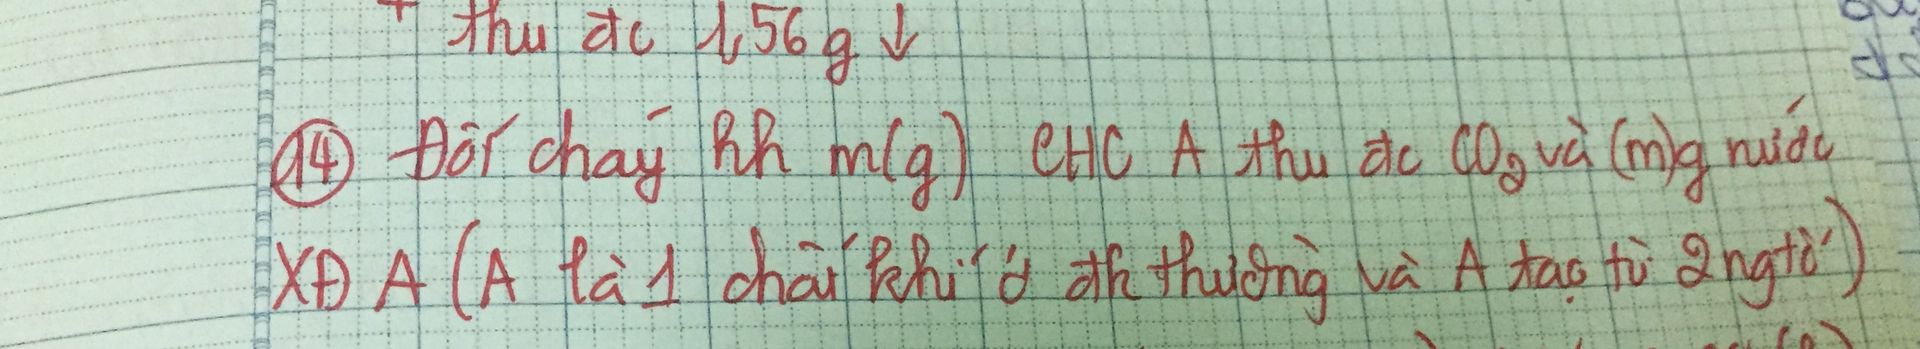 thu đc 1,56 g ↓
14 Đốt cháy hh m(g) CHC A thu đc CO2 và (m)g nước
XĐ A (A là 1 chất khí ở đk thường và A tạo từ 2 ngtố)